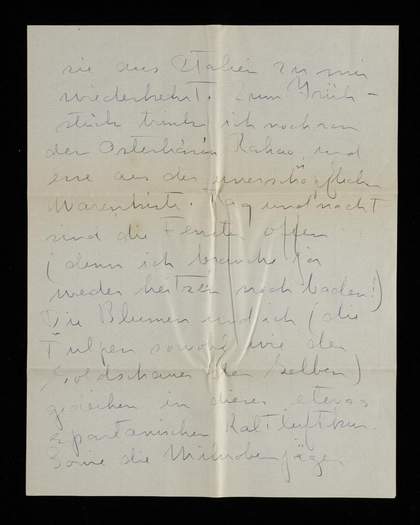 sie aus Italien zu mir
wiederkehrt. Zum Früh-
stück trinke ich noch von
der Osterhäsin Kakao und
esse aus der unerschöpflichen
Warenkiste. Tag und Nacht
sind die Fenster offen
(denn ich brauche ja
weder heizen noch baden!)
Die Blumen und ich (die
Tulpen sowohl wie der
Goldschauer der Gelben)
gedeihen in dieser etwas
spartanischen Kaltluftkur.
Sowie die